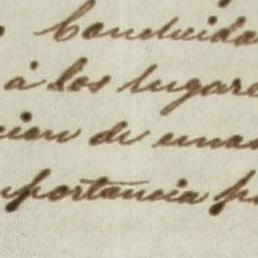 Concluida
á los lugare
cion de unas
mportancia p